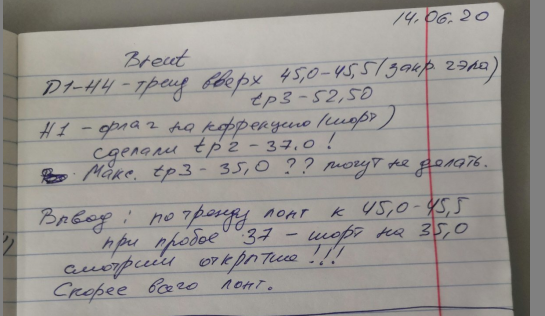 14.06.20
Brent
D1-H4 - тренд вверх 45,0-45,5 (закр. гэпа)
tp3 - 52,50
H1 - флаг на коррекцию (шорт)
сделали tp2 - 37.0 !
Макс. tp3 - 35,0 ?? могут не делать.
Вывод : по тренду лонг к 45,0-45,5
при пробое 37 - шорт на 35,0
смотрим открытие !!!
Скорее всего лонг.